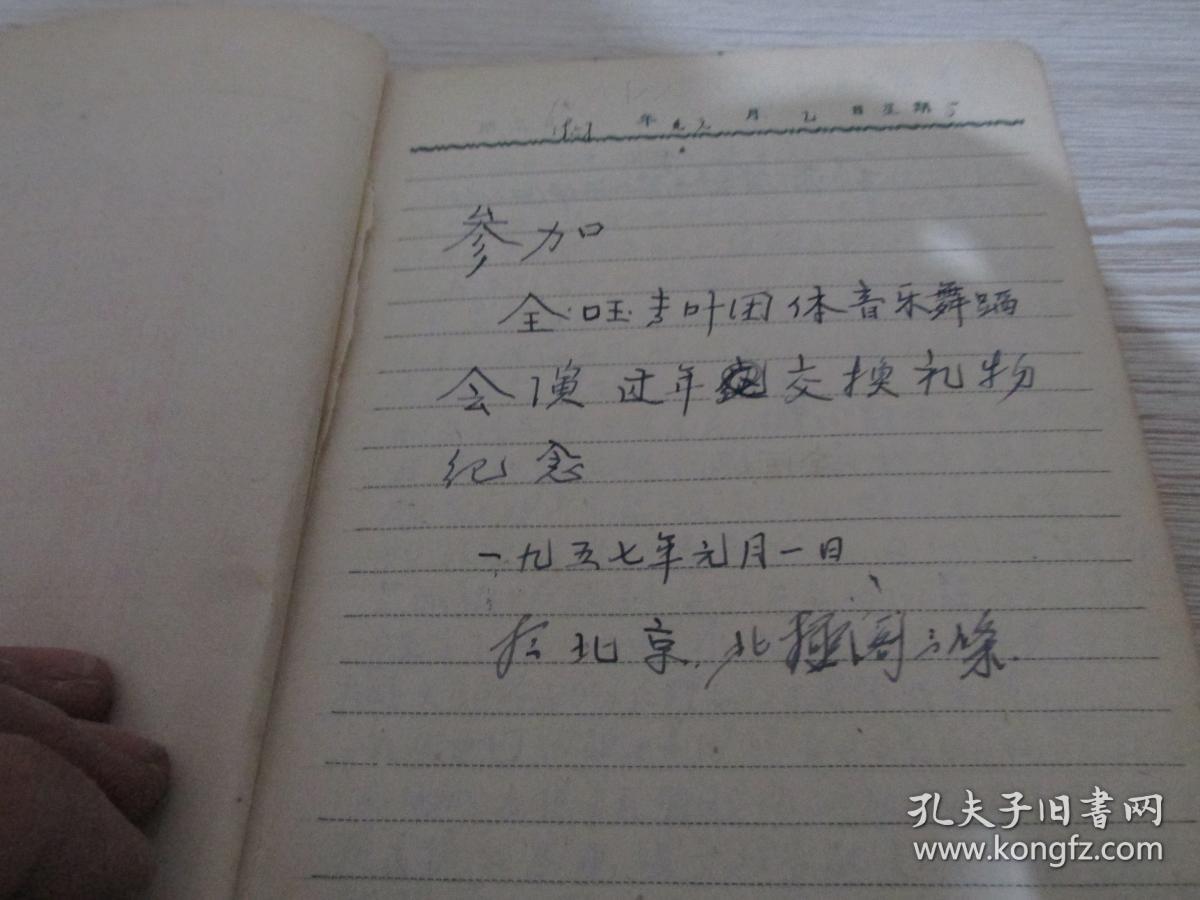 年 月 日星期5
参加
全国专叶团体音乐舞蹈
会演过年交换礼物
纪念
一九五七年元月一日
于北京.北極阁三条.
孔夫子旧书网
www.kongfz.com